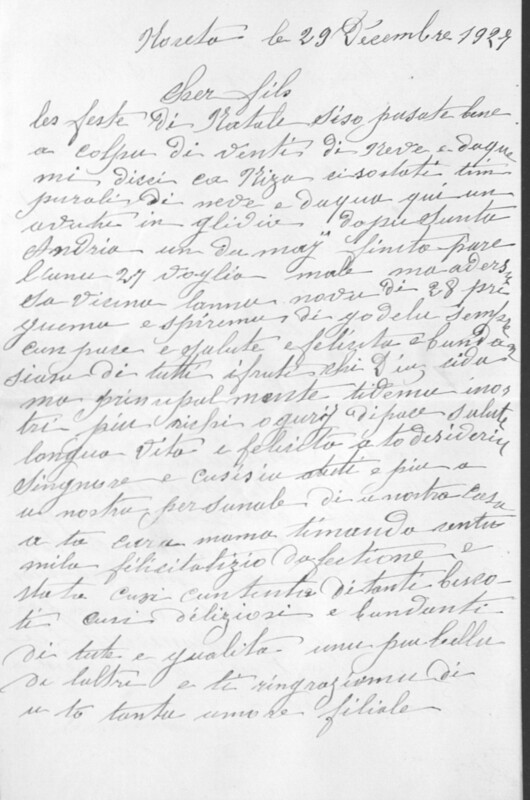 Noceta le 29 Décembre 1927
Cher fils
les feste di Natale siso pasate bene
a colpu di venti di neve e daque
mi disci ca Niza ci so stati tim
purali di neve e daqua qui un
avute in glidio dopu Santa
Andria un da may finito pare
l'anu 27 voglia male ma aders
sa vicina lannu novu di 28 pri
guemu e spiremu di godelu sempre
cun pace e salute e felicita e bunda
siosu di tutti i fruti chi D'iu cida
ma principalmente tidemu i nos
tri piu richi oguri di pace salute
longua vita e felicita a to desideriu
Singnore e cusi sia e piu a
u nostru persunale di a nostra casa
a to cara mama timanda centu
mila filicitalizio dafectione e
stata cusi cuntenta di tanti bisco
ti cusi déliziosi e bundanti
di tute e qualita unu piu bellu
di laltri e ti ringraziemu di
u to tantu amore filiale